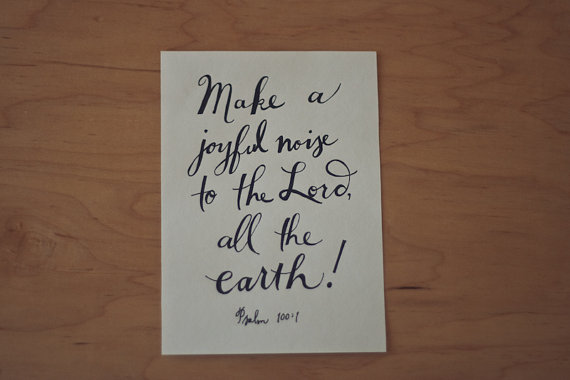 Make a
joyful noise
to the Lord,
all the
earth!
Psalm 100:1